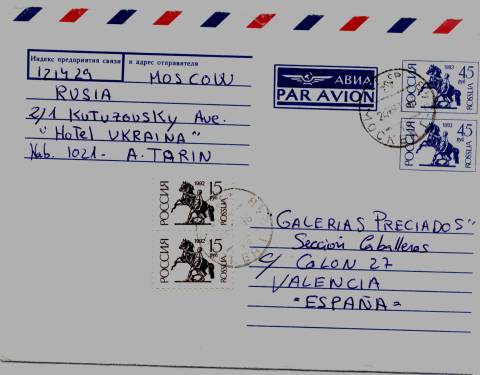 Индекс предприятия связи и адрес отправителя
121429 MOSCOW
RUSIA
2/1 KUTUZOVSKY Ave.
"HOTEL UKRAINA"
Hab. 1021- A. TARIN
АВИА
PAR AVION
РОССИЯ 1992 45 руб ROSSIJA
РОССИЯ 1992 45 руб ROSSIJA
РОССИЯ 1992 15 ROSSIJA
РОССИЯ 1992 15 ROSSIJA
"GALERIAS PRECIADOS"
Sección Caballeros
c/ COLON 27
VALENCIA
"ESPAÑA"